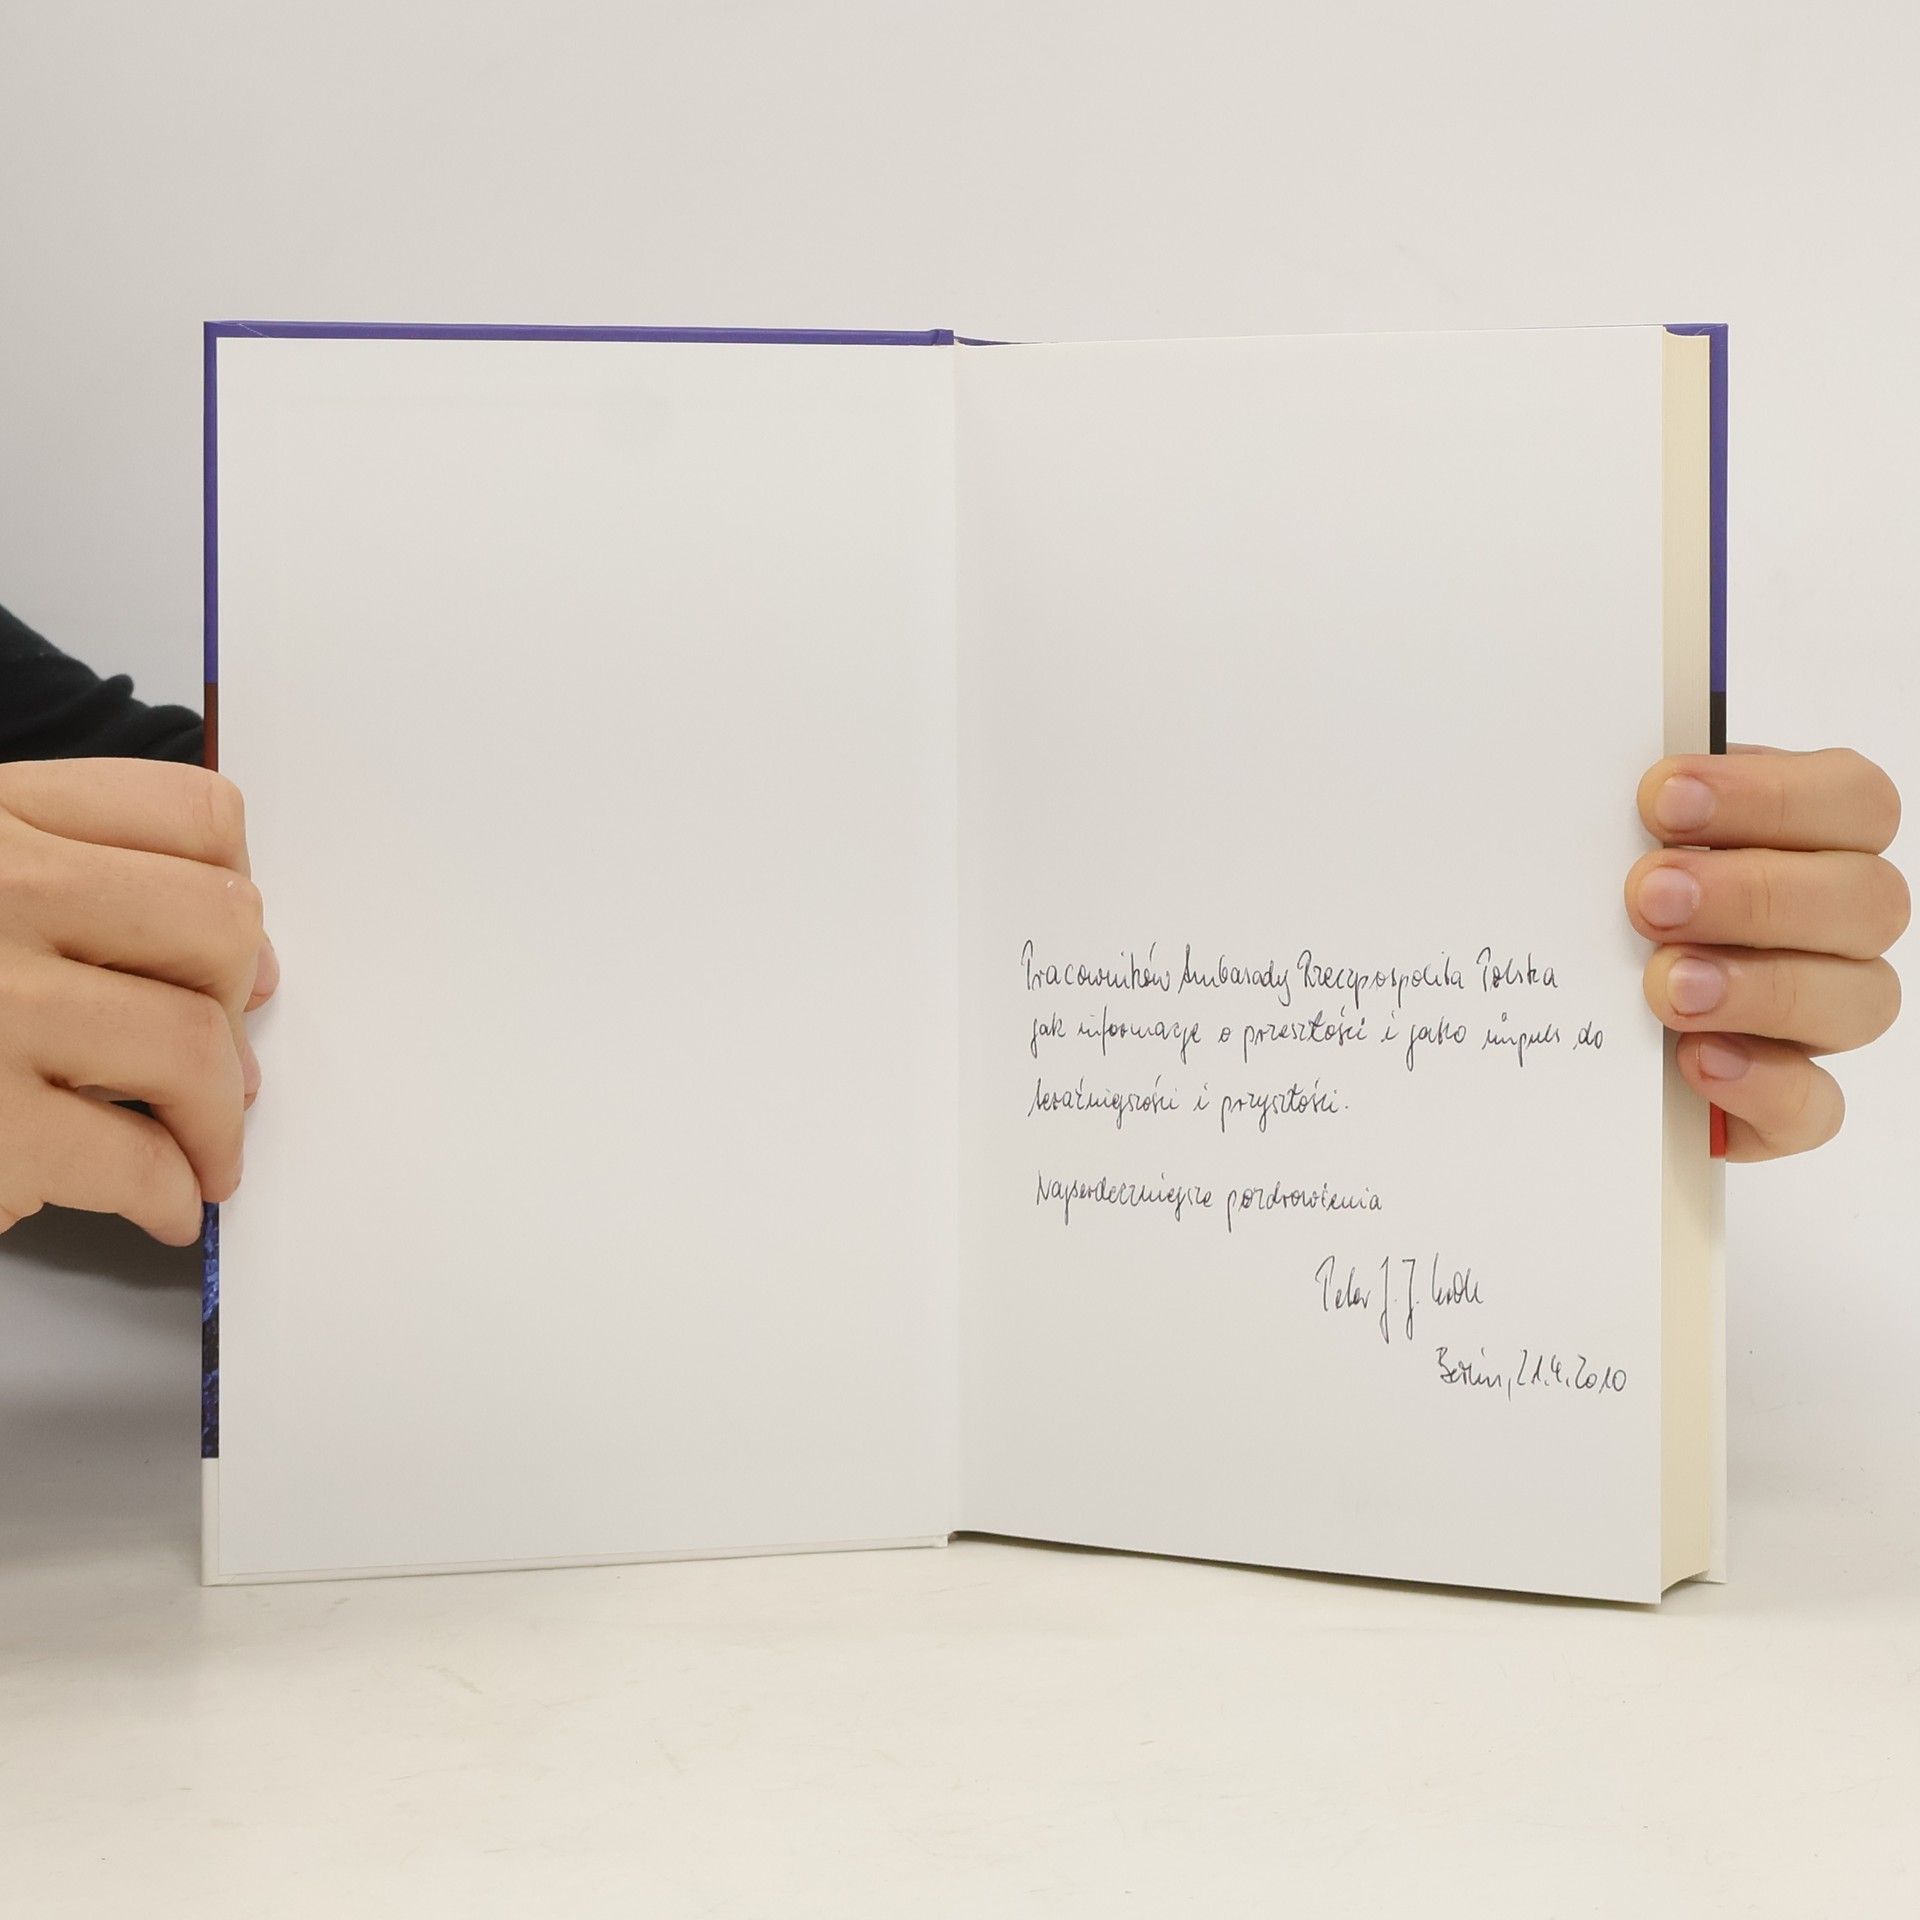 Pracowników Ambasady Rzeczpospolita Polska
jak informacje o przeszłości i jako impuls do
teraźniejszości i przyszłości.
Najserdeczniejsze pozdrowienia
Peter J. J.
Berlin, 21.4.2010